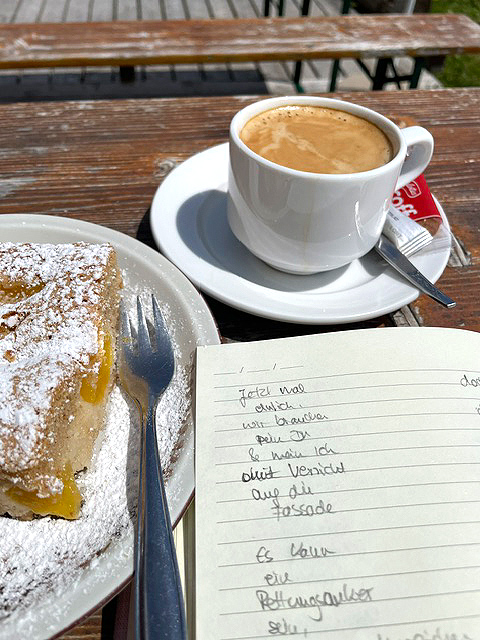 Jetzt mal
ehrlich,
wir brauchen
kein Du
& mein Ich
ohne Verzicht
auf die
Fassade
Es kann
ein
Rettungsanker
sein,